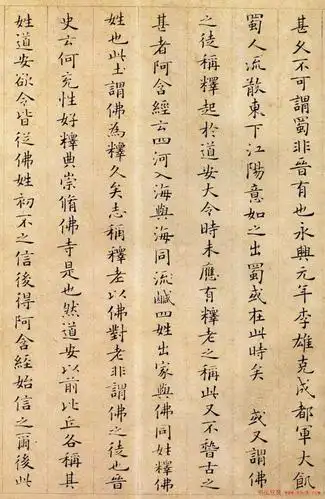 甚久不可謂蜀非晉有也永興元年李雄克成都軍大飢
蜀人流散東下江陽意如之出蜀或在此時矣 或又謂佛
之徒稱釋起於道安大令時未應有釋老之稱此又不暬古之
甚者阿含經云四河入海與海同流鹹四姓出家與佛同姓釋佛
姓也此土謂佛為釋久矣志稱釋老以佛對老非謂佛之徒也晉
史云何充性好釋典崇脩佛寺是也然道安以前比丘各稱其
姓道安欲令皆從佛姓初不之信後得阿含經始信之爾後此